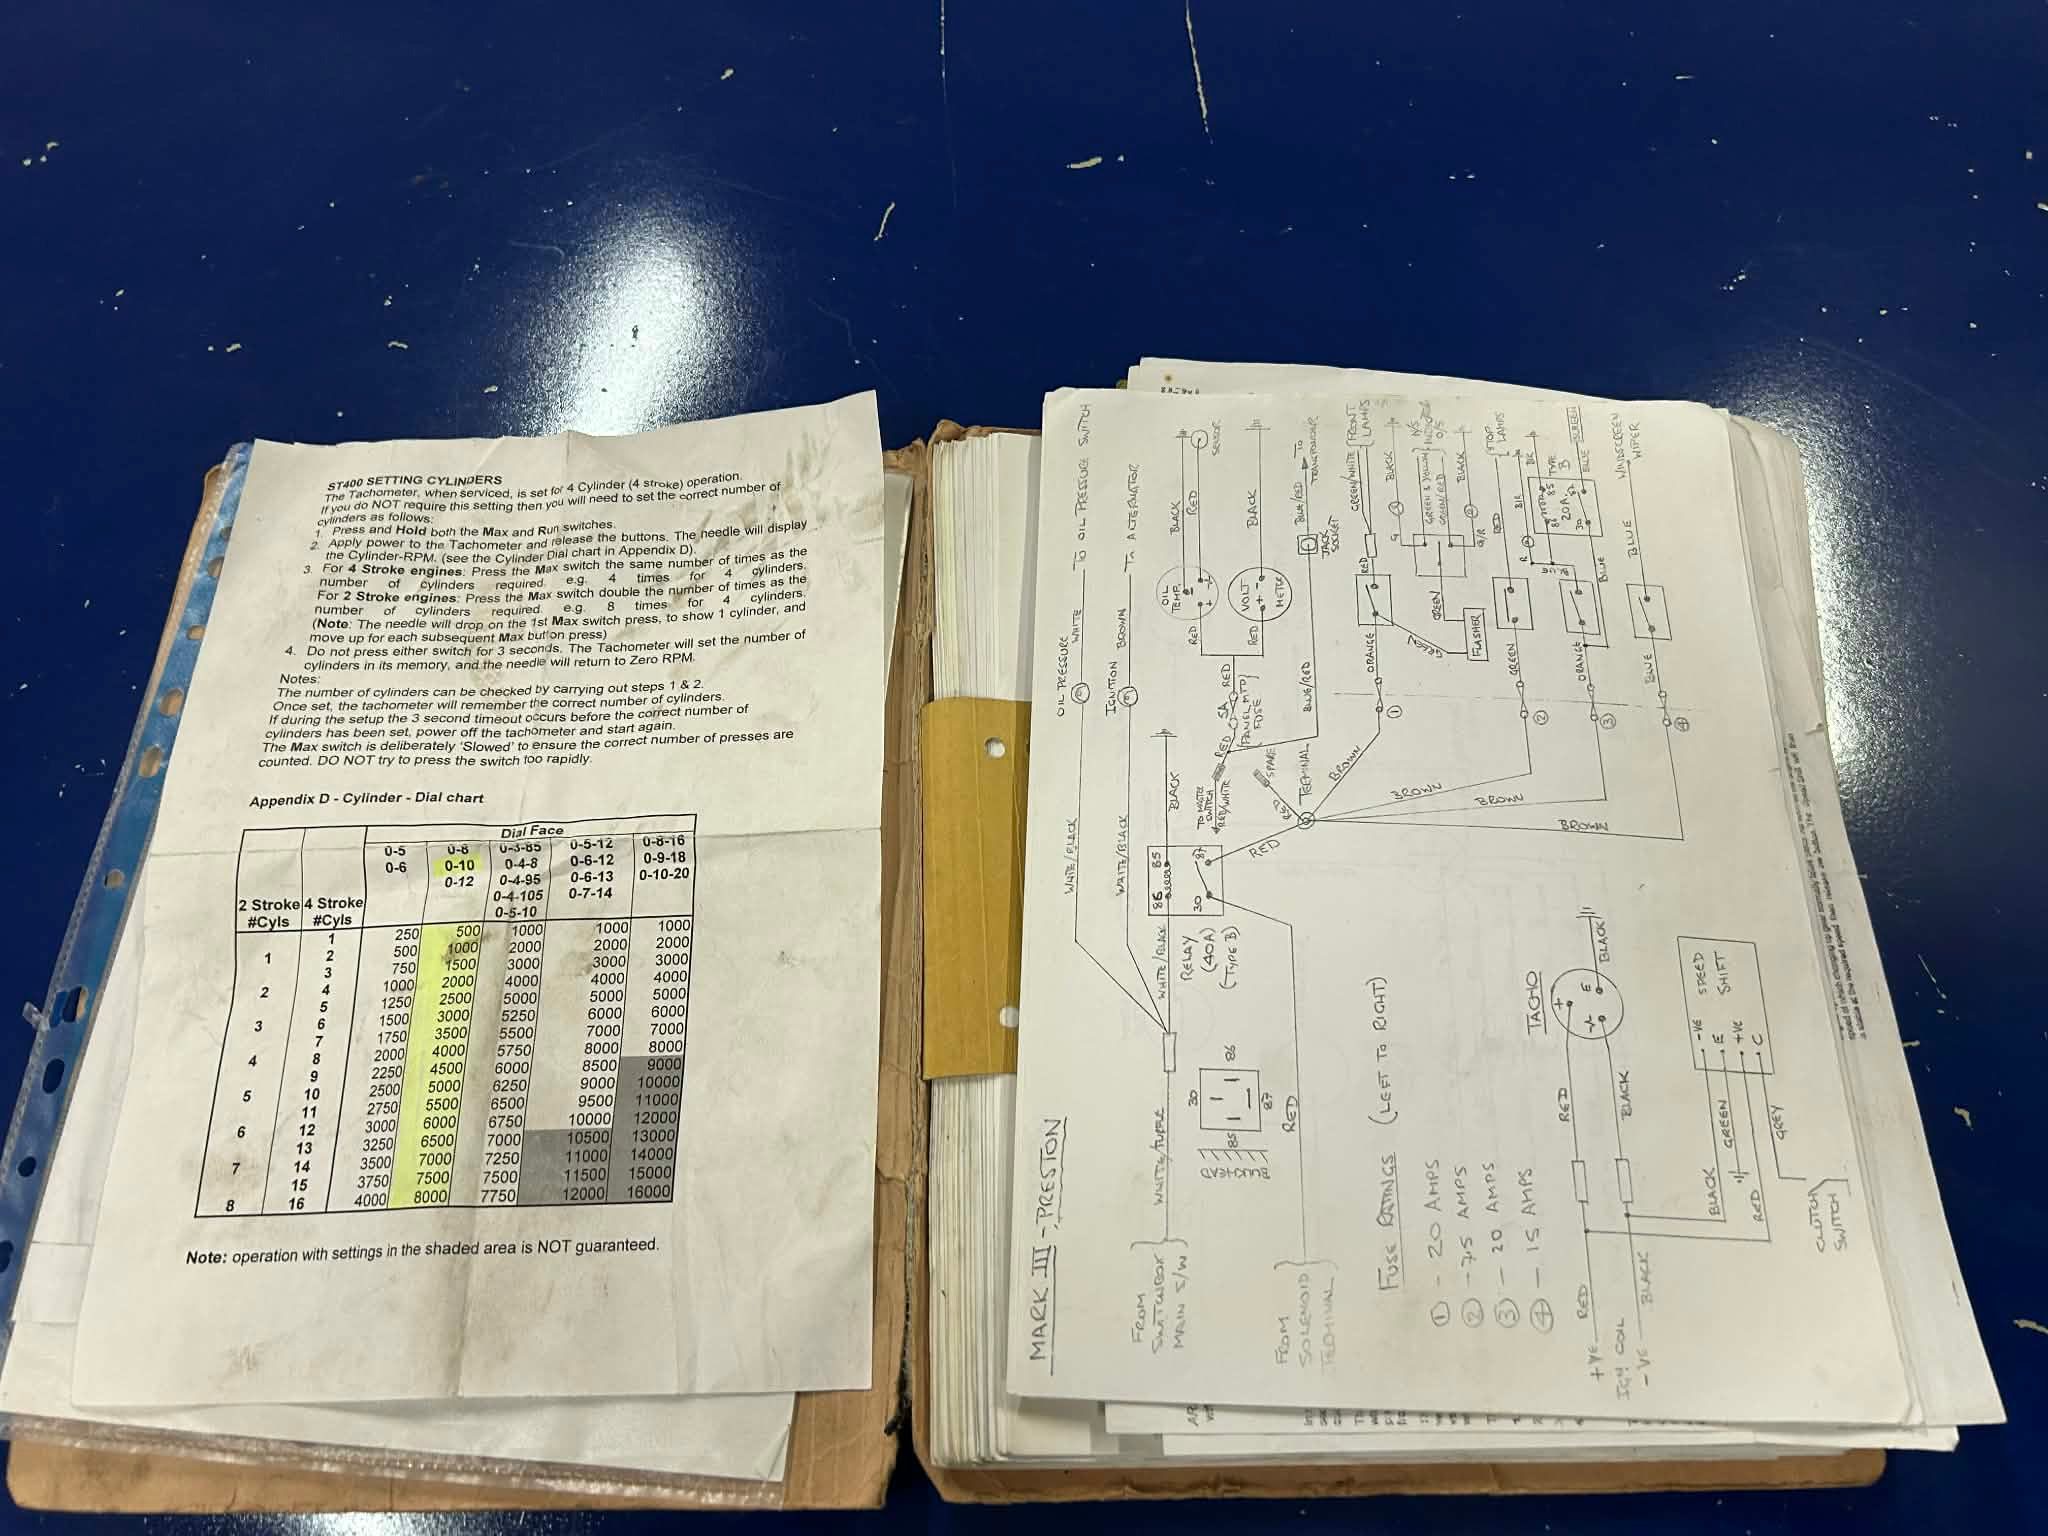 ST400 SETTING CYLINDERS
The Tachometer, when serviced, is set for 4 Cylinder (4 stroke) operation.
If you do NOT require this setting then you will need to set the correct number of
cylinders as follows:
1. Press and Hold both the Max and Run switches.
2. Apply power to the Tachometer and release the buttons. The needle will display
the Cylinder-RPM. (see the Cylinder Dial chart in Appendix D).
3. For 4 Stroke engines: Press the Max switch the same number of times as the
number of cylinders required. e.g. 4 times for 4 cylinders.
For 2 Stroke engines: Press the Max switch double the number of times as the
number of cylinders required. e.g. 8 times for 4 cylinders.
(Note: The needle will drop on the 1st Max switch press, to show 1 cylinder, and
move up for each subsequent Max button press)
4. Do not press either switch for 3 seconds. The Tachometer will set the number of
cylinders in its memory, and the needle will return to Zero RPM.
Notes:
The number of cylinders can be checked by carrying out steps 1 & 2.
Once set, the tachometer will remember the correct number of cylinders.
If during the setup the 3 second timeout occurs before the correct number of
cylinders has been set, power off the tachometer and start again.
The Max switch is deliberately 'Slowed' to ensure the correct number of presses are
counted. DO NOT try to press the switch too rapidly.
Appendix D - Cylinder - Dial chart
Dial Face
0-5 0-8 0-3-85 0-5-12 0-8-16
0-6 0-10 0-4-8 0-6-12 0-9-18
0-12 0-4-95 0-6-13 0-10-20
0-4-105 0-7-14
0-5-10
2 Stroke 4 Stroke
#Cyls #Cyls
1 250 500 1000 1000 1000
1 2 500 1000 2000 2000 2000
3 750 1500 3000 3000 3000
2 4 1000 2000 4000 4000 4000
5 1250 2500 5000 5000 5000
3 6 1500 3000 5250 6000 6000
7 1750 3500 5500 7000 7000
4 8 2000 4000 5750 8000 8000
9 2250 4500 6000 8500 9000
5 10 2500 5000 6250 9000 10000
11 2750 5500 6500 9500 11000
6 12 3000 6000 6750 10000 12000
13 3250 6500 7000 10500 13000
7 14 3500 7000 7250 11000 14000
15 3750 7500 7500 11500 15000
8 16 4000 8000 7750 12000 16000
Note: operation with settings in the shaded area is NOT guaranteed.
MARK III - PRESTON
OIL PRESSURE
WHITE/BLACK
WHITE
TO OIL PRESSURE SWITCH
IGNITION
WHITE/BLACK
BROWN
TO ALTERNATOR
FROM
SWITCHBOX
MAIN S/W
WHITE/PURPLE
WHITE/BLACK
86 85
30 87
BLACK
RELAY
(40A)
(TYPE B)
30
85 86
87
FROM
SOLENOID
TERMINAL
RED
RED
TO MASTER
SWITCH
RED/WHITE
RED
SPARE
RED
5A
RED
PANEL MTD
FUSE
TERMINAL
RED
OIL
TEMP.
BLACK
RED
SENSOR
RED
VOLT
METER
BLACK
BLUE/RED
JACK
SOCKET
BLUE/RED
TO
TRANSPONDER
BROWN
1
ORANGE
RED
GREEN/WHITE
FRONT
LAMPS
GREEN
FLASHER
GREEN
G
BLACK
GREEN & YELLOW
GREEN/RED
N/S
O/S
G/R
BLACK
BROWN
2
GREEN
RED
STOP
LAMPS
BROWN
3
ORANGE
BLUE
86 85
30 87
20A
TYPE
B
BLUE
SCREEN
BROWN
4
BLUE
BLUE
WINDSCREEN
WIPER
FUSE RATINGS (LEFT TO RIGHT)
1 - 20 AMPS
2 - 7.5 AMPS
3 - 20 AMPS
4 - 15 AMPS
TACHO
+VE
RED
RED
+
E
BLACK
IGN COIL
-VE
BLACK
BLACK
BLACK
GREEN
RED
GREY
-VE
E
+VE
C
SPEED
SHIFT
CLUTCH
SWITCH